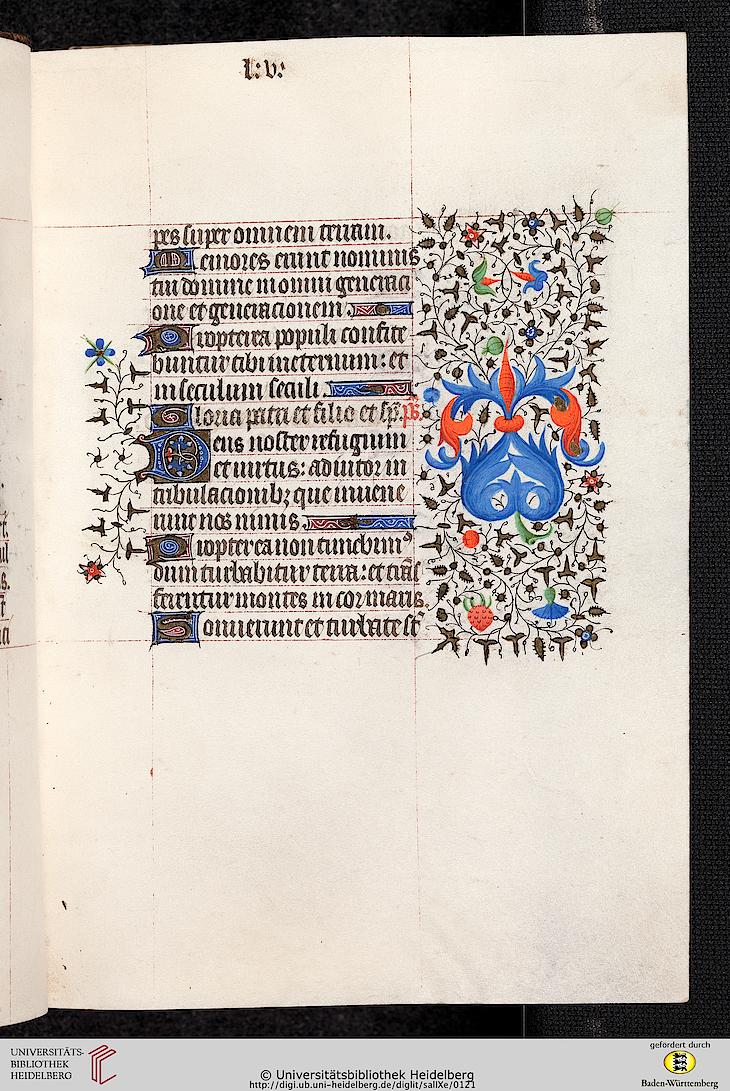 l:v:
pes super omnem terram.
Memores erunt nominis
tui domine in omni generaci
one et generacionem.
Propterea populi confite
buntur tibi in eternum: et
in seculum seculi.
Gloria patri et filio et sp. ps.
Deus noster refugium
et virtus: adiutor in
tribulacionibꝫ que invene
runt nos nimis.
Propterea non timebimꝰ
dum turbabitur terra: et trās
ferentur montes in cor maris.
Sonuerunt et turbate st̄
UNIVERSITÄTS-
BIBLIOTHEK
HEIDELBERG
© Universitätsbibliothek Heidelberg
http://digi.ub.uni-heidelberg.de/diglit/salIXe/0121
gefördert durch
Baden-Württemberg